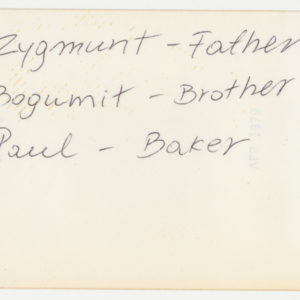 Zygmunt - Father
Bogumit - Brother
Paul - Baker